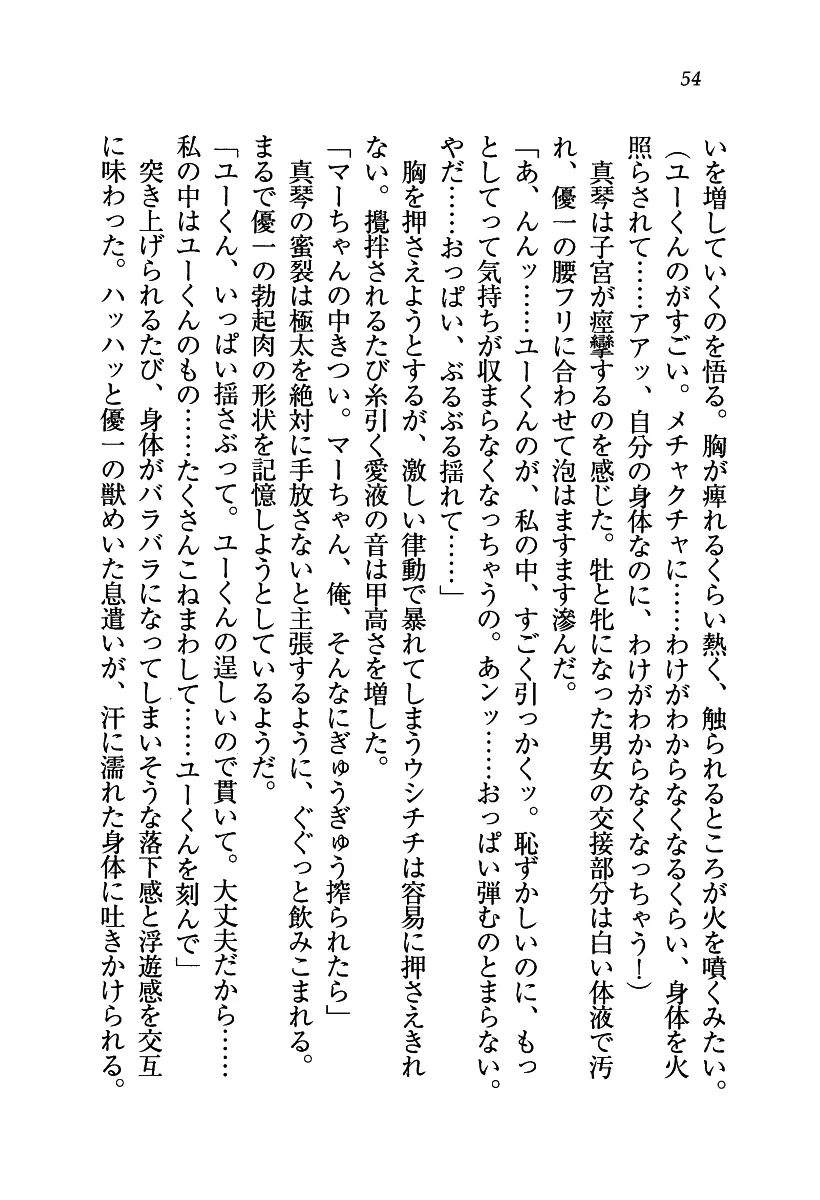 54
いを増していくのを悟る。胸が痺れるくらい熱く、触られるところが火を噴くみたい。
（ユーくんのがすごい。メチャクチャに……わけがわからなくなるくらい、身体を火
照らされて……アアッ、自分の身体なのに、わけがわからなくなっちゃう！）
真琴は子宮が痙攣するのを感じた。牡と牝になった男女の交接部分は白い体液で汚
れ、優一の腰フリに合わせて泡はますます滲んだ。
「あ、んんッ……ユーくんのが、私の中、すごく引っかくッ。恥ずかしいのに、もっ
としてって気持ちが収まらなくなっちゃうの。あンッ……おっぱい弾むのとまらない。
やだ……おっぱい、ぶるぶる揺れて……」
胸を押さえようとするが、激しい律動で暴れてしまうウシチチは容易に押さえきれ
ない。攪拌されるたび糸引く愛液の音は甲高さを増した。
「マーちゃんの中きつい。マーちゃん、俺、そんなにぎゅうぎゅう搾られたら」
真琴の蜜裂は極太を絶対に手放さないと主張するように、ぐぐっと飲みこまれる。
まるで優一の勃起肉の形状を記憶しようとしているようだ。
「ユーくん、いっぱい揺さぶって。ユーくんの逞しいので貫いて。大丈夫だから……
私の中はユーくんのもの……たくさんこねまわして……ユーくんを刻んで」
突き上げられるたび、身体がバラバラになってしまいそうな落下感と浮遊感を交互
に味わった。ハッハッと優一の獣めいた息遣いが、汗に濡れた身体に吐きかけられる。